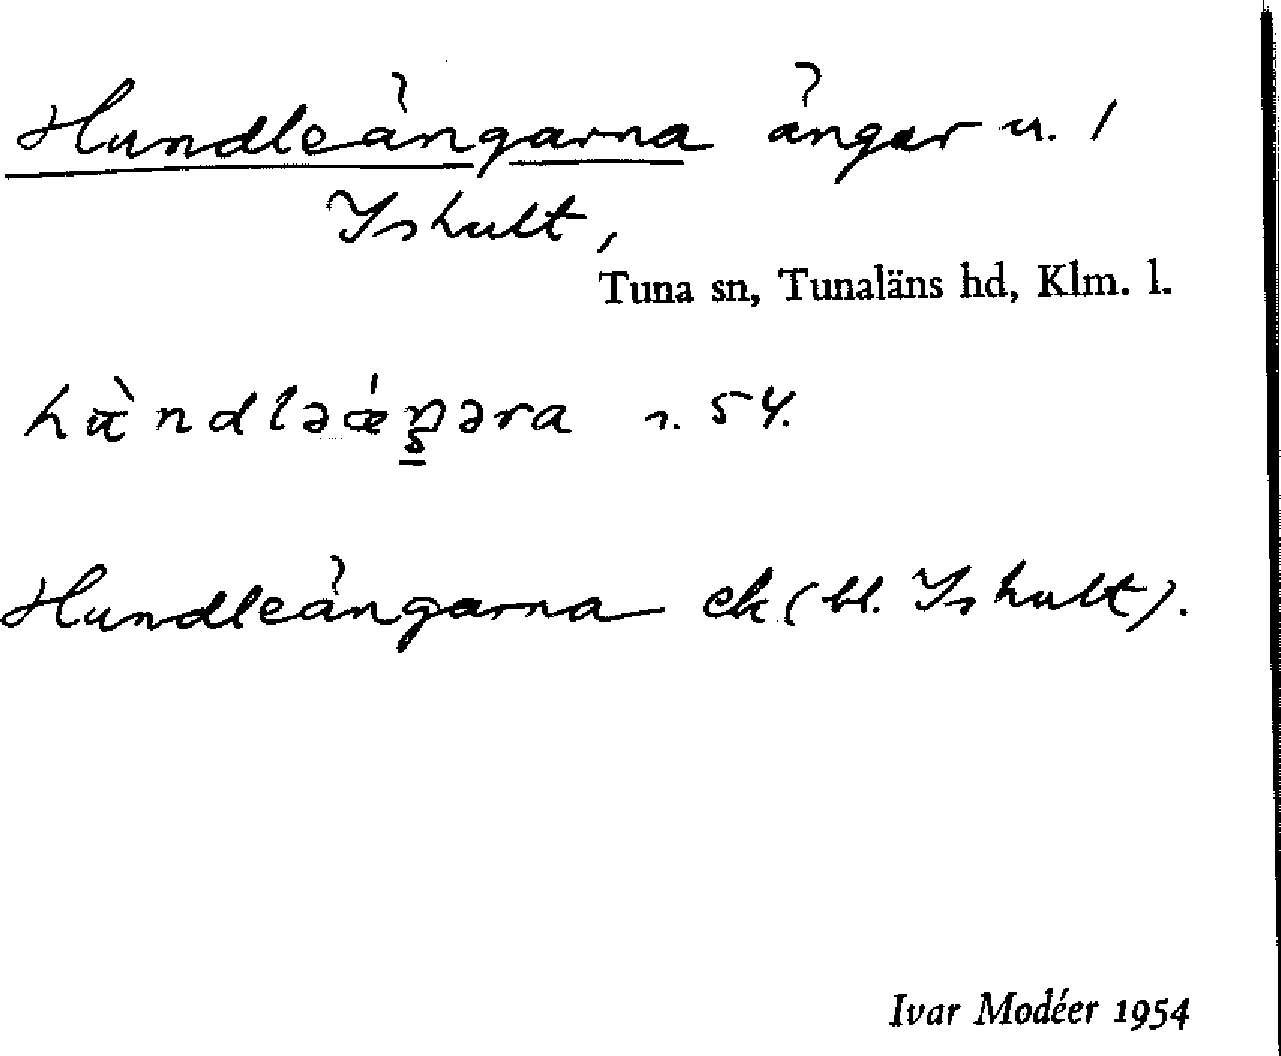 Hundleängarna ängar u. 1
Ishult,
Tuna sn, Tunaläns hd, Klm. l.
54.
Hundleängarna ek (bl. Ishult).
Ivar Modéer 1954